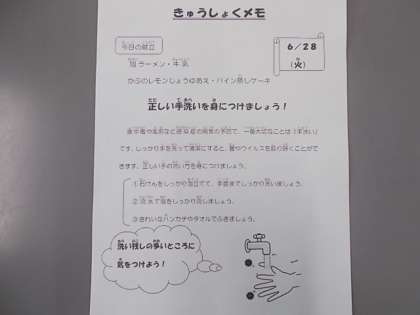 きゅうしょくメモ
今日の献立
6／28
（火）
塩ラーメン・牛乳
かぶのレモンじょうゆあえ・パイン蒸しケーキ
正しい手洗いを身につけましょう！
食中毒や風邪など感染症の病気の予防で、一番大切なことは「手洗い」
です。しっかり手を洗って清潔にすると、菌やウイルスを取り除くことがで
きます。正しい手の洗い方を身につけましょう。
①石けんをしっかり泡立てて、手首までしっかり洗いましょう。
②流水で泡をしっかり流しましょう。
③きれいなハンカチやタオルでふきましょう。
洗い残しの多いところに
気をつけよう！